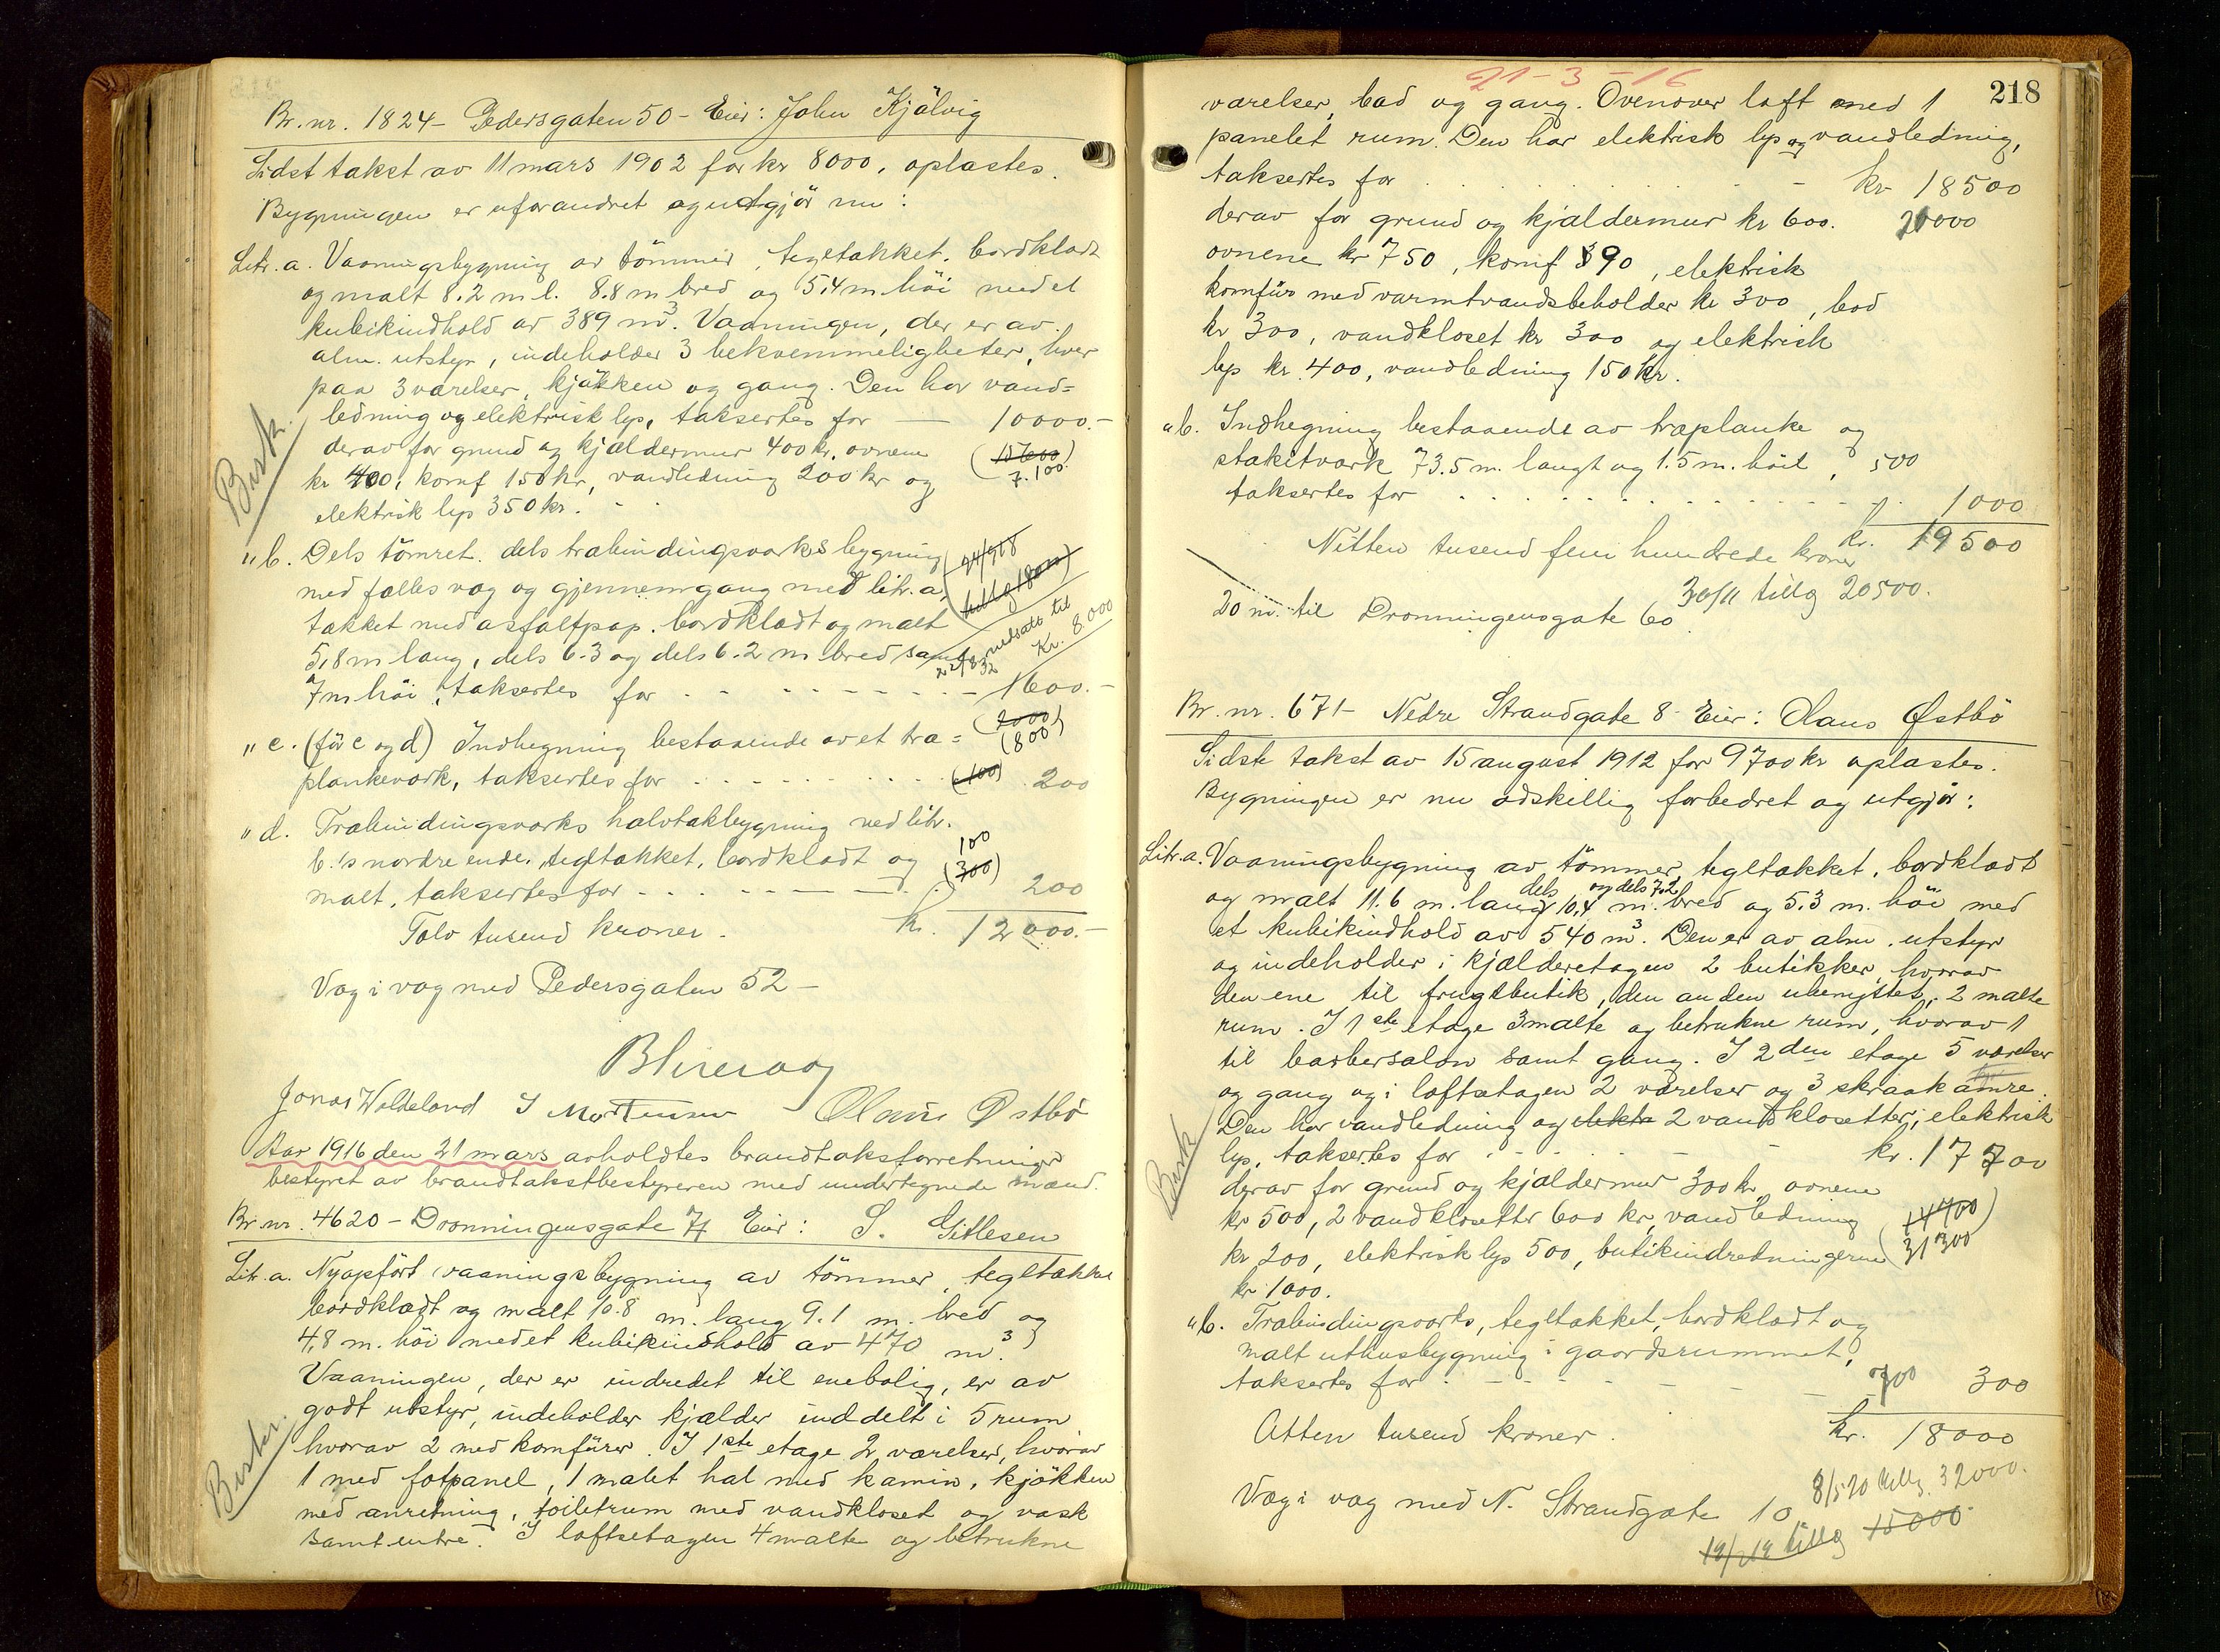 Br. nr. 1824 - Pedersgaten 50 - Eier: John Kjölvig
Sidst takst av 11 mars 1902 for kr 8000, oplastes.
Bygningen er uforandret og utgjör nu:
Litr. a. Vaaningsbygning av tömmer, tegltækket, bordklædt
og malt 8.2 m l. 8.8 m bred og 5,4 m höi med et
kubikindhold av 389 m³. Vaaningen, der er av
alm. utstyr, indeholder 3 bekvemmeligheter, hver
paa 3 værelser, kjökken og gang. Den har vand=
ledning og elektrisk lys, taksertes for — 10000.-
derav for grund og kjældermur 400 kr, ovnene (15600)
kr 400, komf 150 kr, vandledning 200 kr og 7.100
elektrisk lys 350 kr.
Besk.
" b. Dels tömret, dels træbindingsværks bygning
med fælles væg og gjennemgang med litr. a,
tækket med asfaltpap, bordklædt og malt
5,8 m lang, dels 6.3 og dels 6.2 m bred samt
7 m höi, taksertes for - - - - 1600.-
24/9 18
tillæg 18000)
22/8 32 nedsatt til
Kr. 8.000
(2000)
(800)
" c. (för c og d) Indhegning bestaaende av et træ=
plankeværk, taksertes for - - - - (400) 200
" d. Træbindingsværks halvtakbygning ved litr.
b.'s nordre ende, tegltækket, bordklædt og 100
malt, taksertes for - - - - (300) 200
Tolv tusend kroner. kr. 12000.-
Væg i væg med Pedersgaten 52 -
Jonas Woldeland Olaus Østbö
Aar 1916 den 21 mars avholdtes brandtakstforretninger
bestyret av brandtakstbestyreren med undertegnede mænd.
Br. nr. 4620 - Dronningensgate 71 Eier: S. Gitlesen
Litr. a. Nyopfört vaaningsbygning av tömmer, tegltækket
bordklædt og malt 10.8 m. lang 9.1 m. bred og
4,8 m. höi med et kubikindhold av 470 m³.
Vaaningen, der er indredet til enebolig, er av
godt utstyr, indeholder kjælder inddelt i 5 rum
hvorav 2 med komfürer. I 1ste etage 2 værelser, hvorav
1 med fotpanel, 1 malet hal med kamin, kjökken
med anretning, toiletrum med vandkloset og vask
samt entre. I loftsetagen 4 malte og betrukne
21-3-16
218
værelser, bad og gang. Ovenover loft med 1
panelet rum. Den har elektrisk lys og vandledning,
taksertes for - - - - kr 18500
derav for grund og kjældermur kr 600. 20000
ovnene kr 750, komf 390, elektrisk
komfür med varmtvandsbeholder kr 300, bad
kr 300, vandkloset kr 300 og elektrisk
lys kr 400, vandledning 150 kr.
" b. Indhegning bestaaende av træplanke og
stakitværk 73.5 m. langt og 1.5 m. höit, 500
taksertes for - - - - 1000
Nitten tusend fem hundrede kroner kr. 19500
30/11 tillæg 20500.
20 m. til Dronningensgate 60
Br. nr. 671 - Nedre Strandgate 8 - Eier: Olaus Østbö
Sidste takst av 15 august 1912 for 9700 kr oplastes.
Bygningen er nu adskillig forbedret og utgjör:
Litr. a. Vaaningsbygning av tömmer, tegltækket, bordklædt
dels og dels 7.2
og malt 11.6 m. lang 10,4 m. bred og 5.3 m. höi med
et kubikindhold av 540 m³. Den er av alm. utstyr
og indeholder i kjælderetagen 2 butikker, hvorav
den ene til frugtbutik, den anden ubenyttet, 2 malte
rum. I 1ste etage 3 malte og betrukne rum, hvorav 1
til barbersalon samt gang. I 2den etage 5 værelser
og gang og i loftsetagen 2 værelser og 3 skraakamre.
Den har vandledning og elektr 2 vandklosetter, elektrisk
lys, taksertes for - - - kr. 17700
derav for grund og kjældermur 300 kr, ovnene
kr 500, 2 vandklosetter 600 kr, vandledning (14700)
kr 200, elektrisk lys 500, butikindretningerne 31300
kr 1000.
Besk
" b. Træbindingsværks, tegltækket, bordklædt og
malt uthusbygning i gaardsrummet,
taksertes for - - - - 700 300
Atten tusend kroner. kr. 18000
8/5 20 tillæg 32000.
Væg i væg med N. Strandgate 10
tillæg 15000